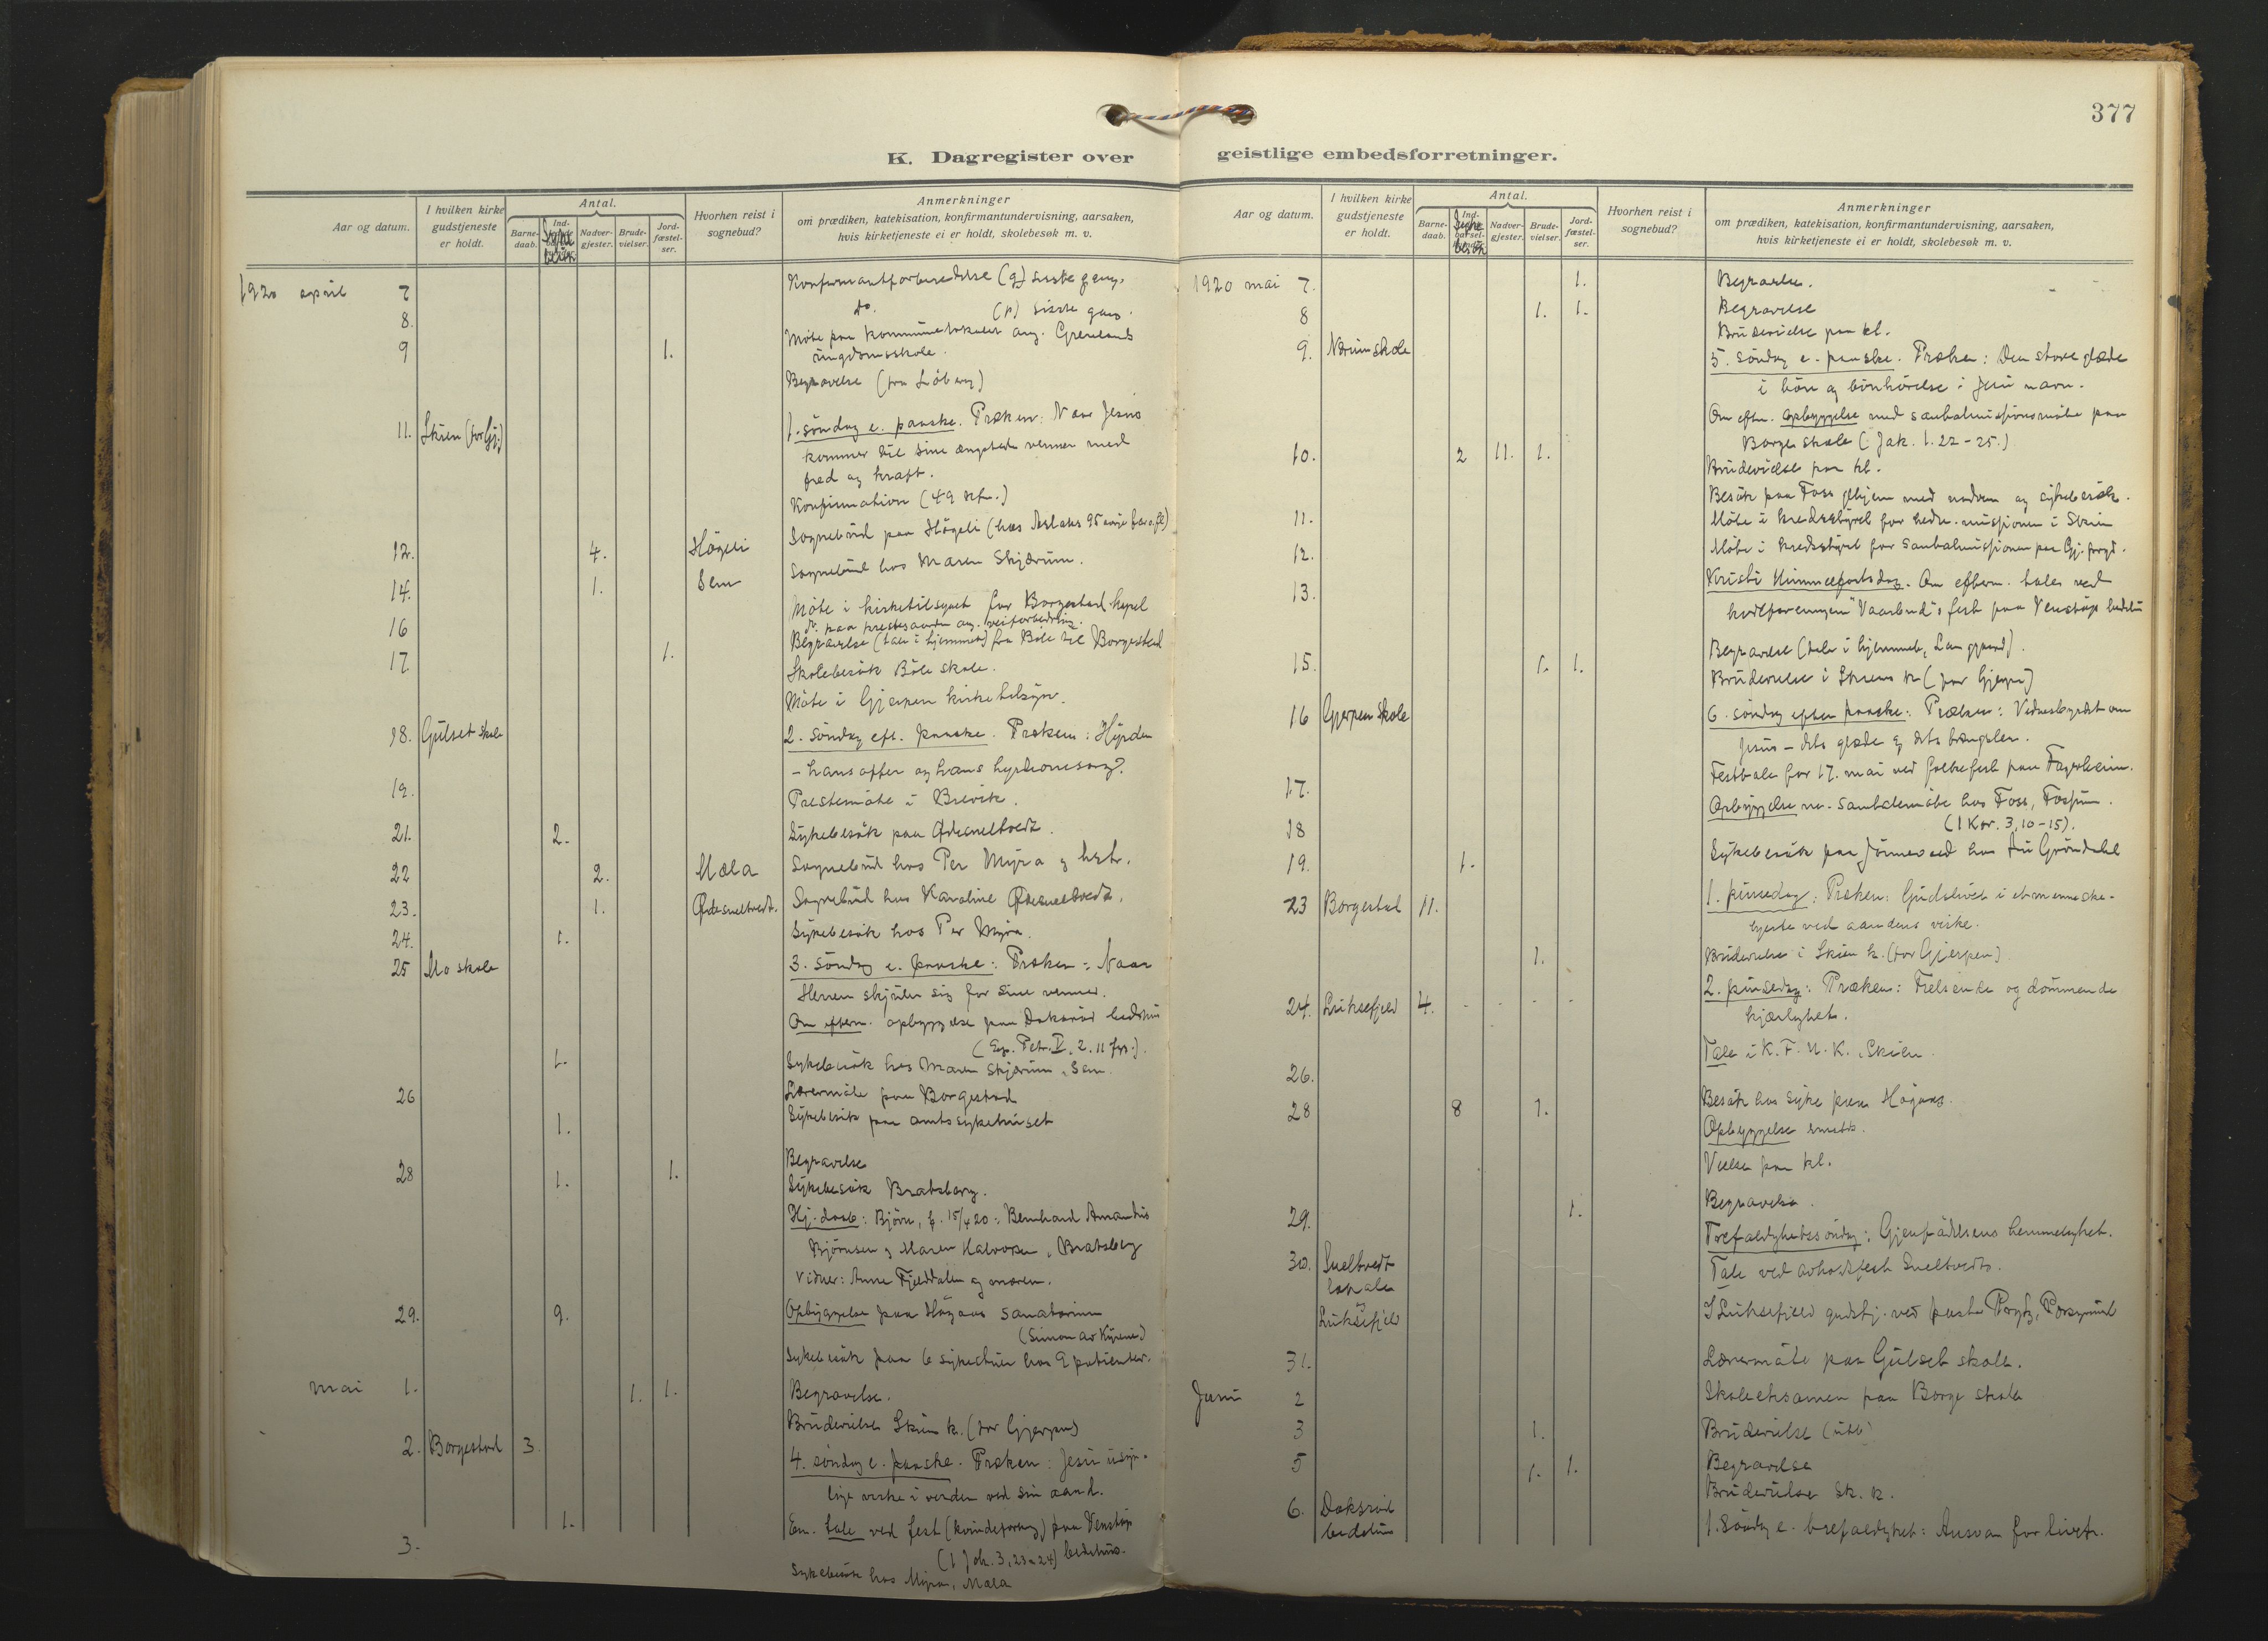 377
K. Dagregister over geistlige embedsforretninger.
Aar og datum.
I hvilken kirke gudstjeneste er holdt.
Antal.
Barne-daab.
Syke besök
Nadver-gjester.
Brude-vielser.
Jord-fæstel-ser.
Hvorhen reist i sognebud?
Anmerkninger
om prædiken, katekisation, konfirmantundervisning, aarsaken,
hvis kirketjeneste ei er holdt, skolebesøk m. v.
1920 april 7 Konfirmantforberedelse (g) siste gang.
8. do. (p) siste gang.
9 1. Möte paa kommunelokalet ang. Grenlands
ungdomsskole.
Begravelse (fra Liöberg)
11. Skien (for Gj.) 1. söndag e. paaske. Præken: Naar Jesus
kommer til sine ængstede venner med
fred og kraft.
Konfirmation (49 )
12. 4. Högeli Sognebud paa Högeli (hos Aslaks 95 )
14. 1. Sem Sognebud hos Maren Skjærum.
16 Möte i kirketilsynet for Borgestad kapel
do. paa prestegaarden ang. veiforbedring.
17 1. Begravelse (tale i hjemmet) fra Böle til Borgestad
Skolebesök Böle skole.
Möte i Gjerpen kirketilsyn.
18. Gulset skole 2. söndag eft. paaske. Præken: Hyrden
- hans offer og hans hyrdeomsorg.
19. Prestemöte i Brevik.
21. 2. Sykebesök paa Ödesneltvedt.
22 2. Mæla Sognebud hos Per Myra og hstr.
23. 1. Ödesneltvedt. Sognebud hos Karoline Ödesneltvedt.
24. 1. Sykebesök hos Per Myra.
25 Mo skole 3. söndag e. paaske: Præken: Naar
Herren skjuler sig for sine venner.
Om eftern. opbyggelse paa Doksrød bedehus
(Ep. Petr. I, 2. 11 fgg.).
1. Sykebesök hos Maren Skjærum, Sem.
26 Lærermöte paa Borgestad
1. Sykebesök paa amtssykehuset
28 1. Begravelse
1. Sykebesök Bratsberg.
Hj. daab: Björn, f. 15/4 20: Bernhard Amandus
Björnsen og Maren Halvorsen, Bratsberg
Vidner: Anne Fjelddalen og moren.
29. 9. Opbyggelse paa Högaas sanatorium
(Simon av Kyrene)
Sykebesök paa 6 sykestuer hos 9 patienter.
mai 1. 1. 1. Begravelse.
Brudevielse Skien k. (for Gjerpen)
2. Borgestad 3 4. söndag e. paaske. Præken: Jesu usyn-
lige virke i verden ved sin aand.
Em. tale ved fest (kvindeforng) paa Venstöp
(1 Joh. 3, 23-24) bedehus.
3. 1. Sykebesök hos Myra, Mæla
Aar og datum.
I hvilken kirke gudstjeneste er holdt.
Antal.
Barne-daab.
Syke besök
Nadver-gjester.
Brude-vielser.
Jord-fæstel-ser.
Hvorhen reist i sognebud?
Anmerkninger
om prædiken, katekisation, konfirmantundervisning, aarsaken,
hvis kirketjeneste ei er holdt, skolebesøk m. v.
1920 mai 7. 1. Begravelse.
8 1. 1. Begravelse
Brudevielse paa kl.
9. Nærum skole 5. söndag e. paaske. Præken: Den store glæde
i bön og bönhörelse i Jesu navn.
Om eftm. opbyggelse med santalmissionsmöte paa
Borge skole (Jak. 1. 22-25.)
10. 2 11. 1. Brudevielse paa kl.
Besök paa Foss glhjem med nadver og sykebesök.
11. Möte i kredsstyret for hedn. missionen i Skien
12. Möte i kredsstyret for Santalmissionen paa Gj. prgd.
13. Kristi Himmelfartsdag. Om eftern. tales ved
kvdforeningen "Vaarbud"s fest paa Venstöps bedehus
15. 1. 1. Begravelse (tale i hjemmet, )
Brudevielse i Skiens k (for Gjerpen)
16 Gjerpen skole 6. söndag efter paaske: Præken: Vidnesbyrdet om
Jesus - dets glæde og dets trængsler.
17. Festtale for 17. mai ved folkefest paa Fagerheim.
18 Opbyggelse m. santalmöte hos Foss, Fossum.
(1 Kor. 3, 10-15).
19. 1. Sykebesök paa Jönnevald hos Gröndahl
23 Borgestad 11. 1. pinsedag: Præken: Gudslivet i et menneske-
hjerte ved aandens virke.
1. Brudevielse i Skien k. (for Gjerpen)
24. Luksefjeld 4. - - - - 2. pinsedag: Præken: Frelsende og dömmende
kjærlighet.
26. Tale i K. F. U. K. Skien.
28 8 1. Besök hos syke paa Högaas.
Opbyggelse smstds.
Vielse paa kl.
29. 1. Begravelse.
30. Sneltvedt
lokale
og
Luksefjeld
Trefoldighetssöndag: Gjenfödelsens hemmelighet.
Tale ved avholdsfest Sneltvedt.
I Luksefjeld gudstj. ved prest , Porsgrund
31. Lærermöte paa Gulset skole.
Juni 2 Skoleeksamen paa Borge skole
3 1. Brudevielse (utb)
5 1. 1. Begravelse
Brudevielse Sk. k.
6. Doksrød
bedehus
1. Söndag e. trefoldighet: Ansvar for livet.